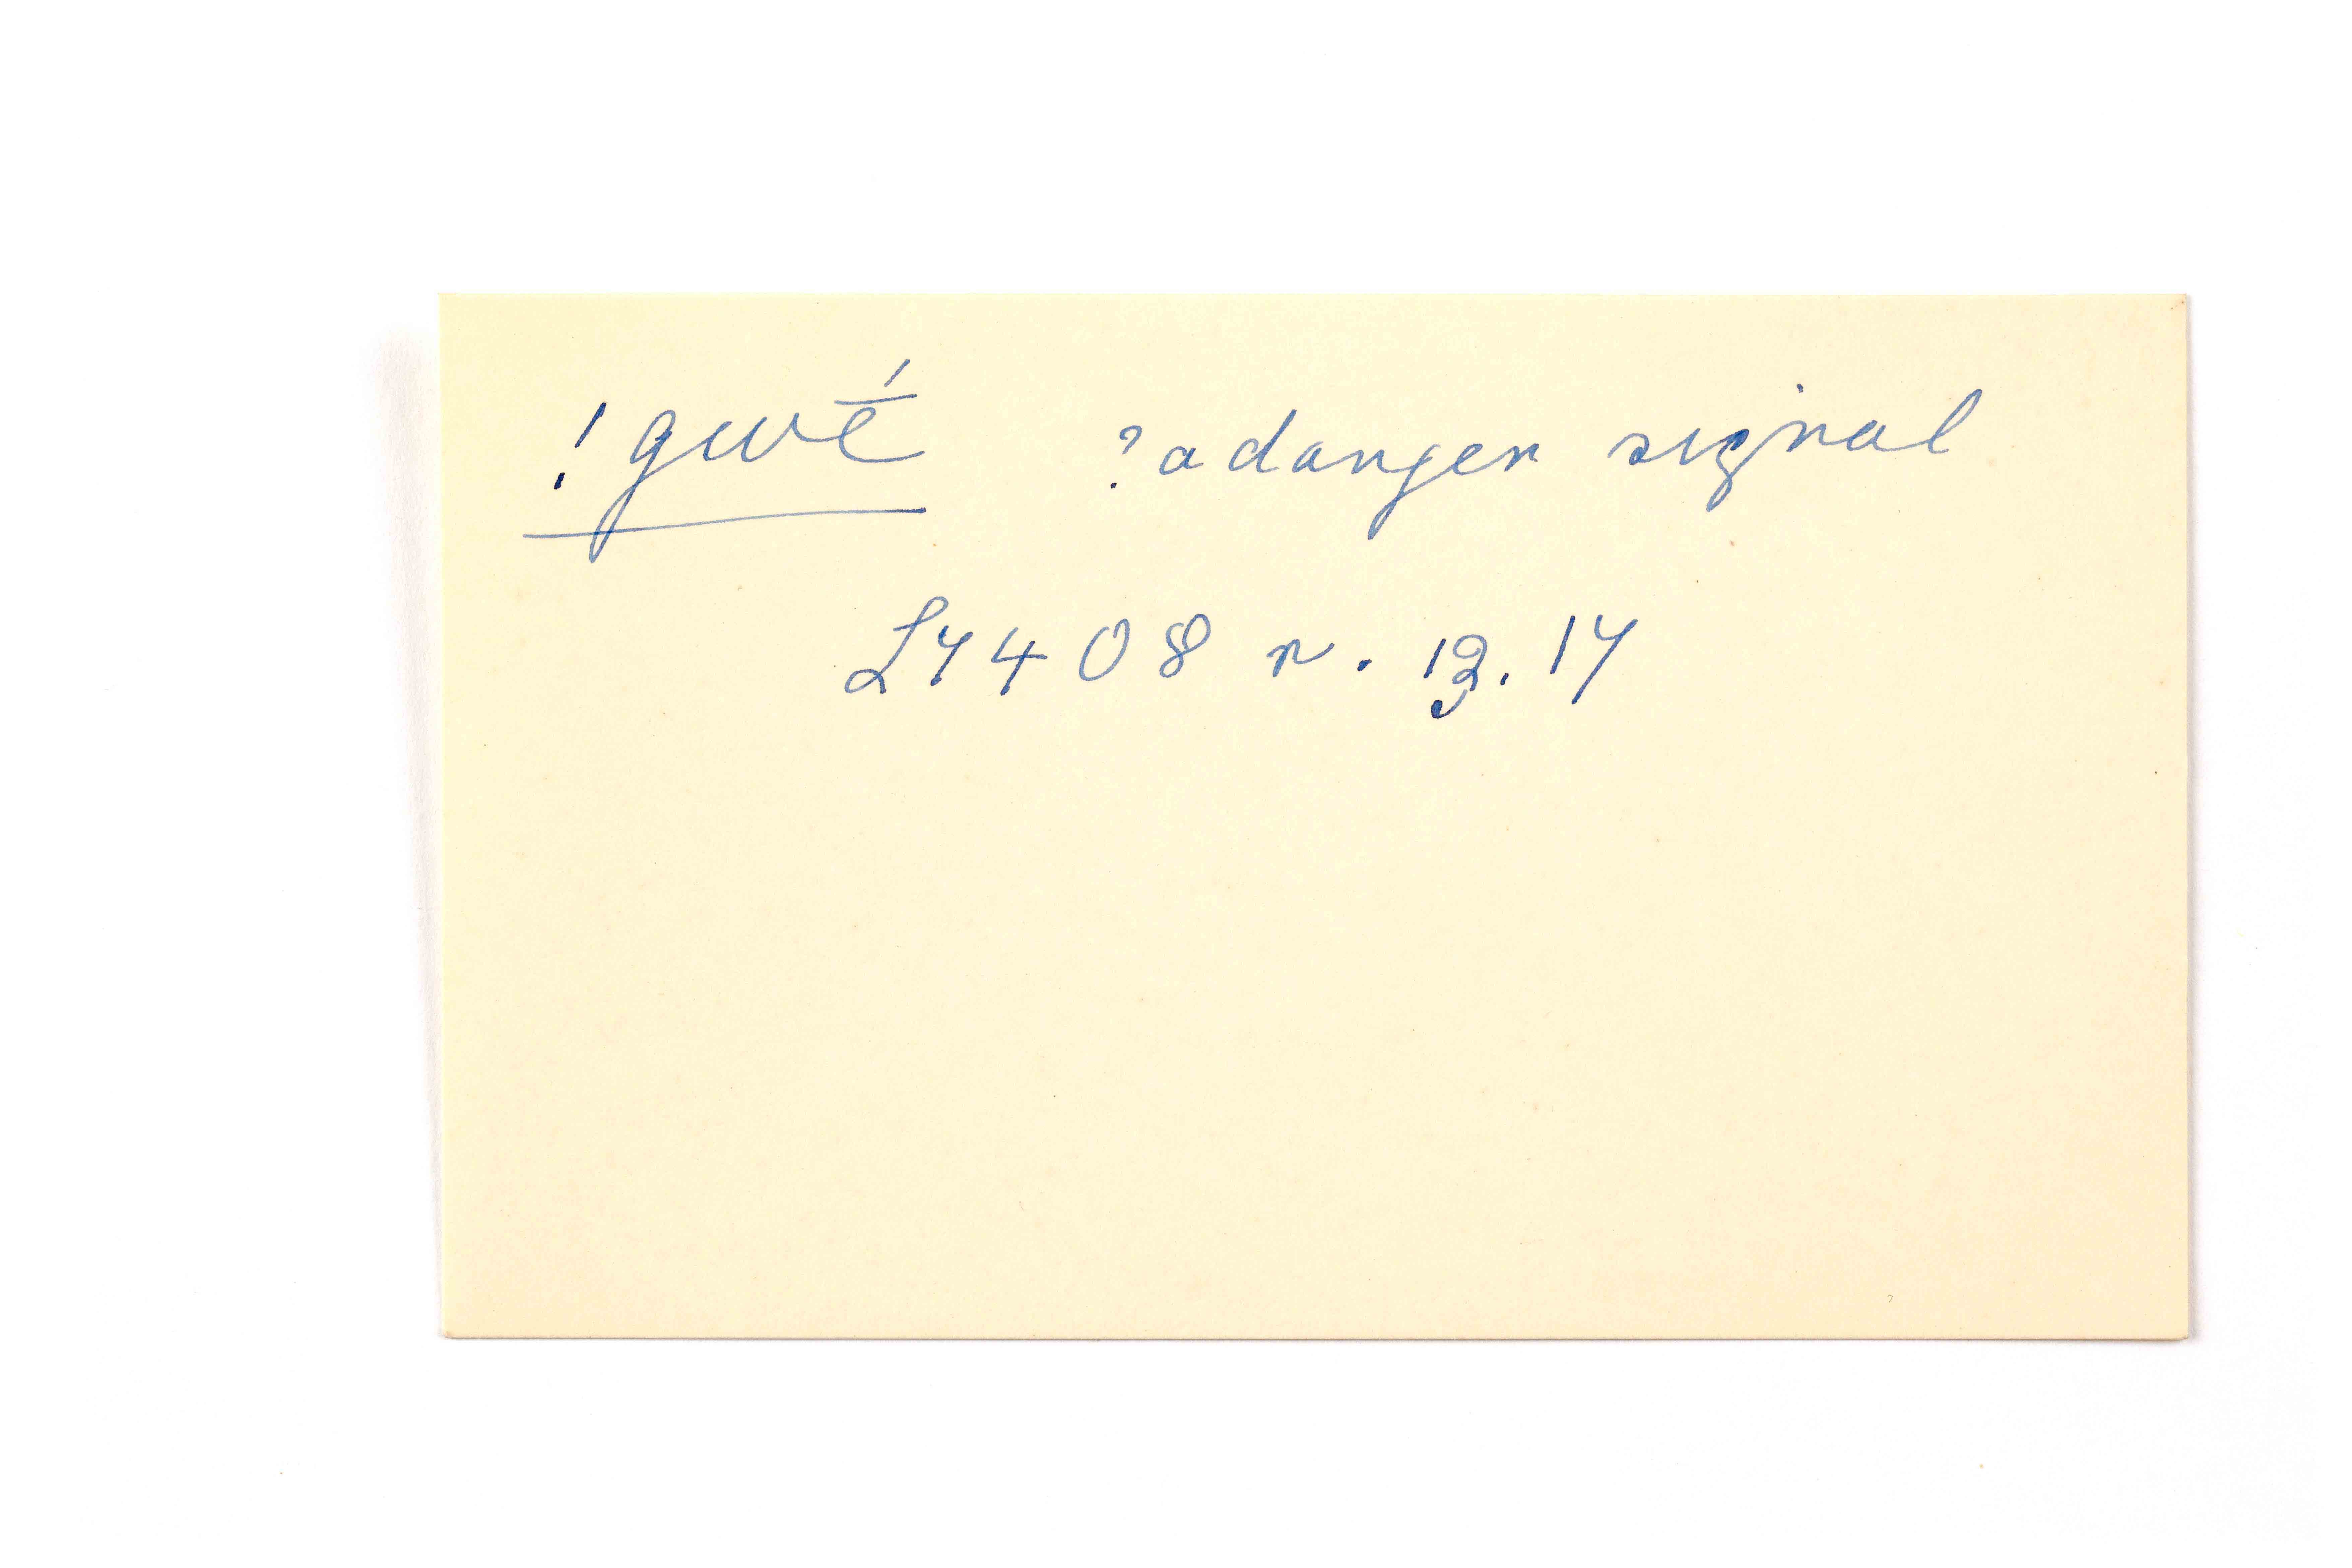 ! gwḗ ? a danger signal
L V 4 08 r. 13. 14